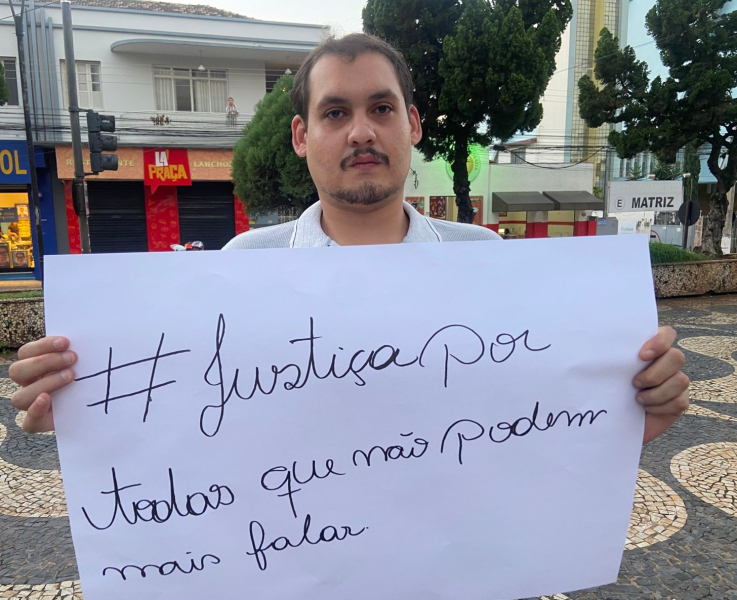 OL
RESTAURANTE
LA PRAÇA
LANCHO
E MATRIZ
#Justiça por
todas que não podem
mais falar.